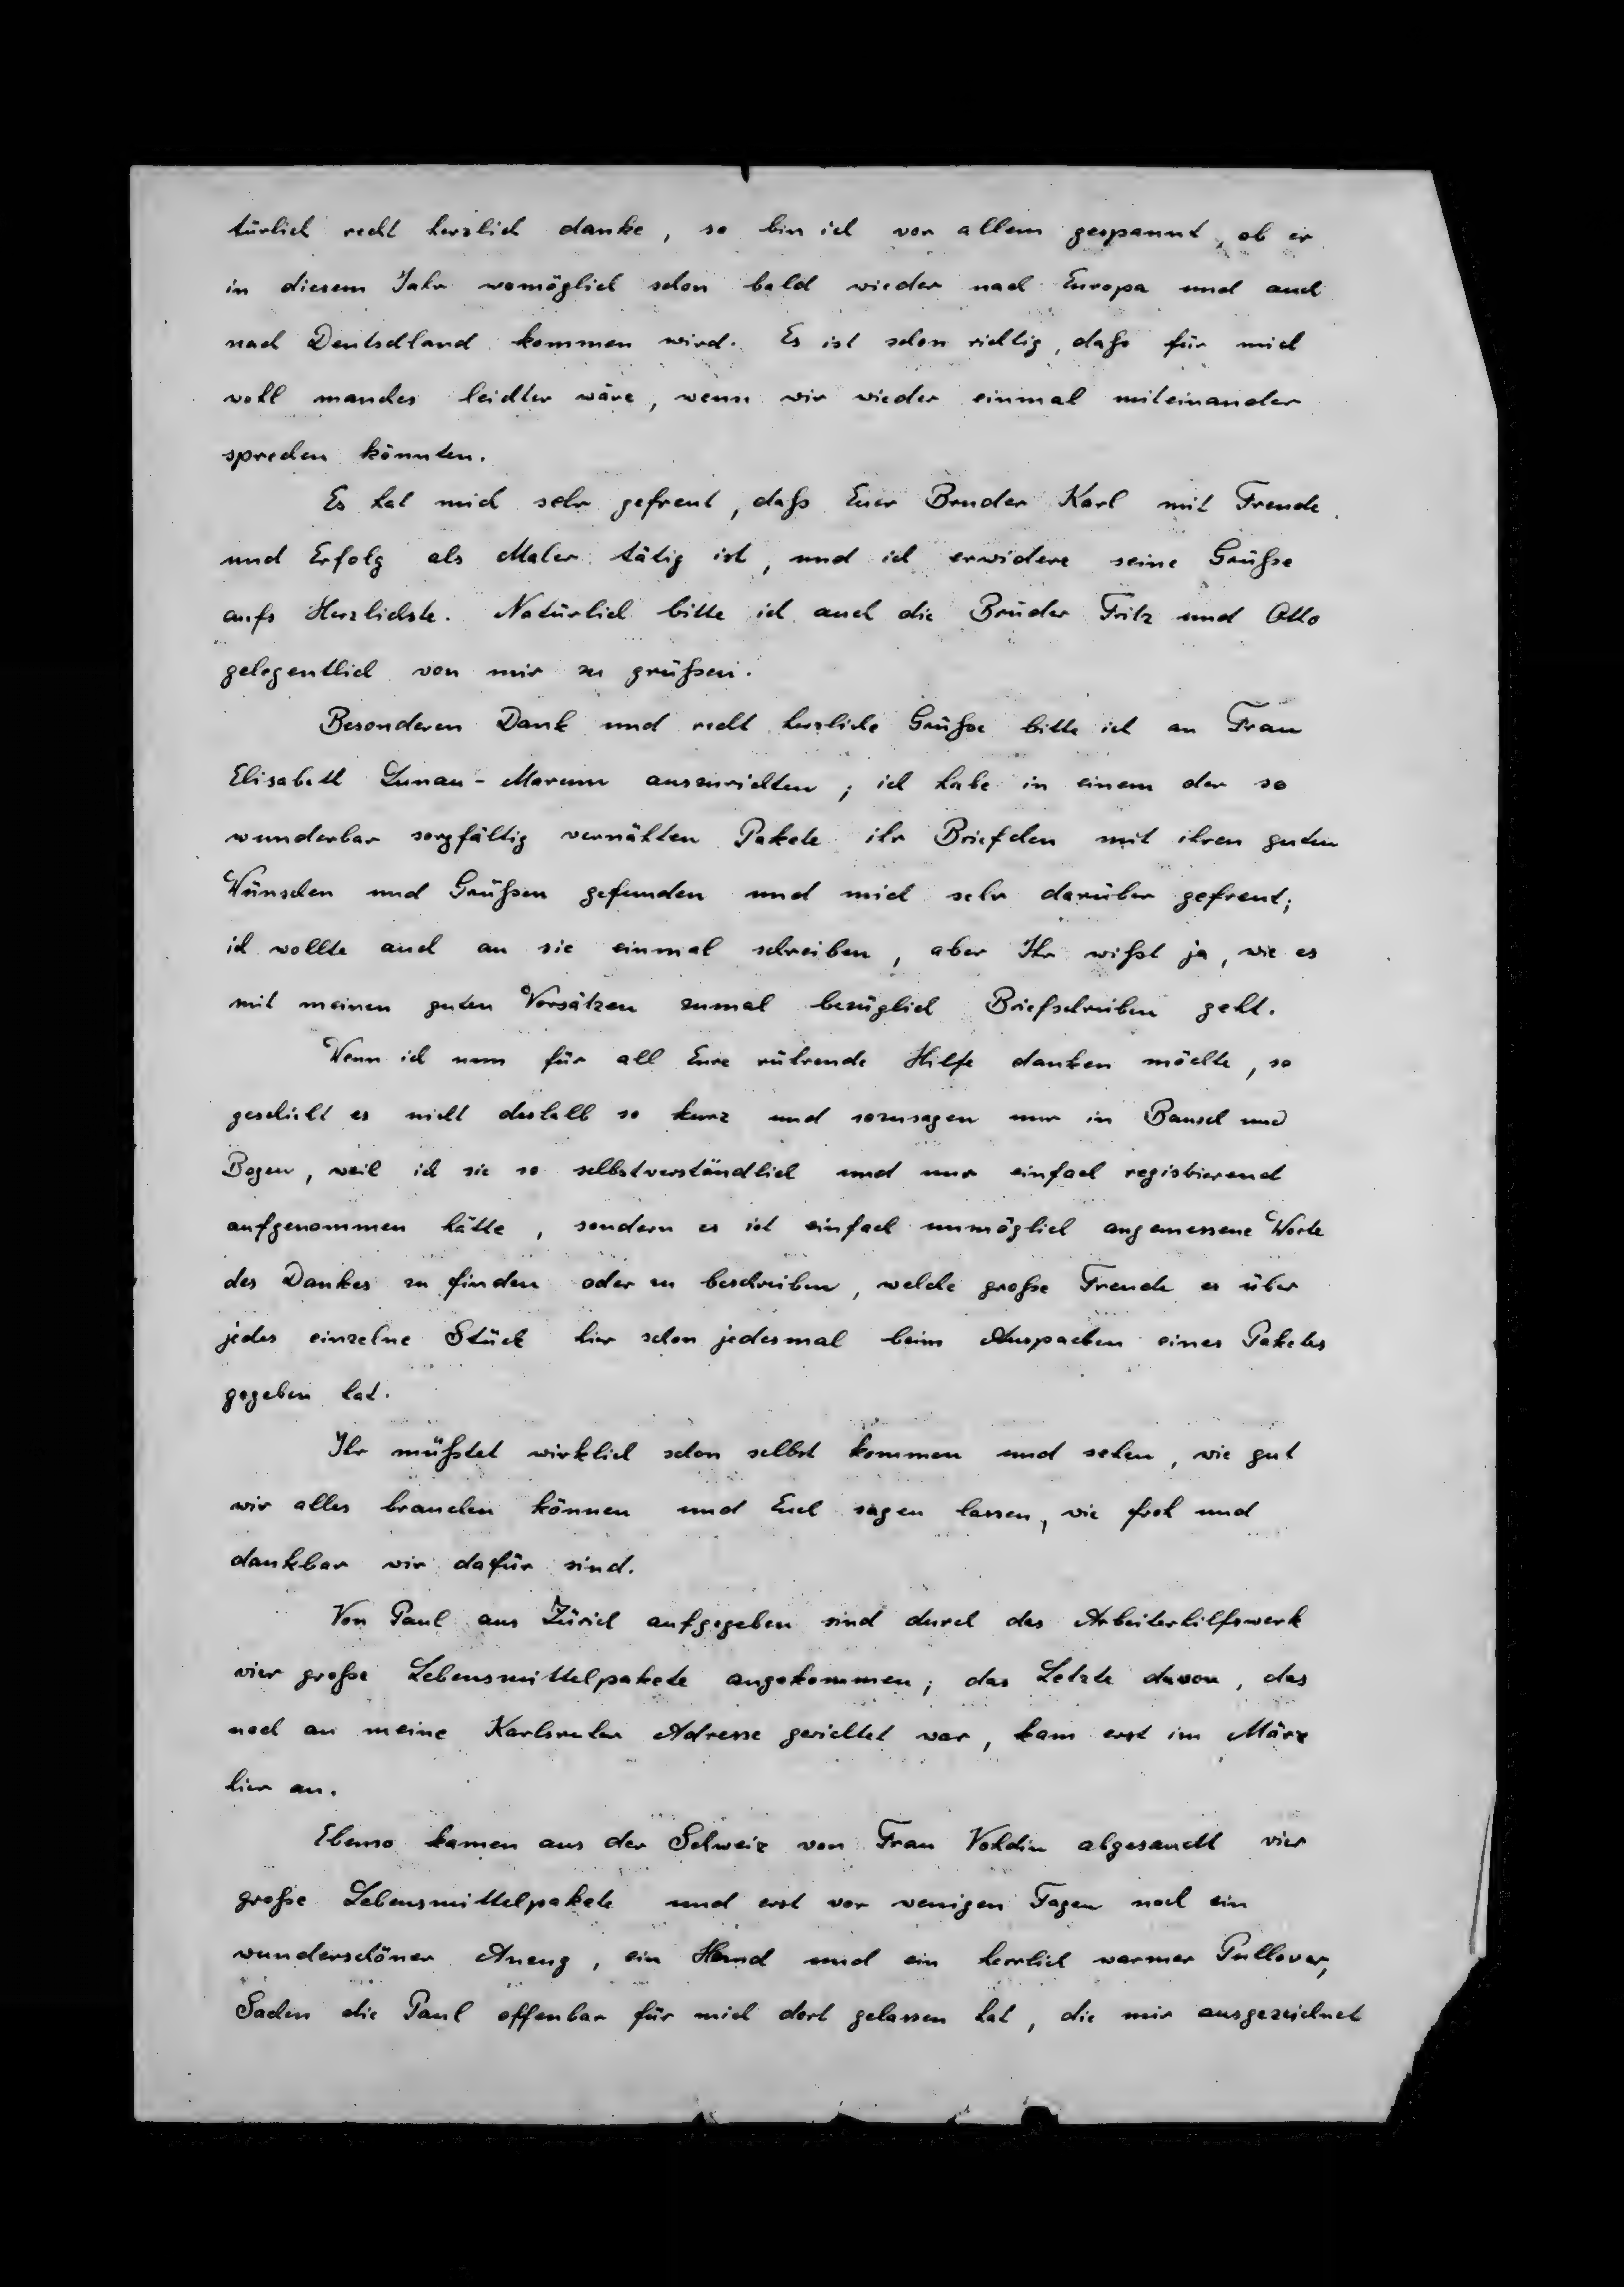 türlich recht herzlich danke, so bin ich vor allem gespannt, ob er
in diesem Jahr womöglich schon bald wieder nach Europa und auch
nach Deutschland kommen wird. Es ist schon richtig, daß für mich
wohl manches leichter wäre, wenn wir wieder einmal miteinander
sprechen könnten.
Es hat mich sehr gefreut, daß Euer Bruder Karl mit Freude
und Erfolg als Maler tätig ist, und ich erwidere seine Grüße
aufs Herzlichste. Natürlich bitte ich auch die Brüder Fritz und Otto
gelegentlich von mir zu grüßen.
Besonderen Dank und recht herzliche Grüße bitte ich an Frau
Elisabeth Lunau-Marum auszurichten; ich habe in einem der so
wunderbar sorgfältig vernähten Pakete ihr Briefchen mit ihren guten
Wünschen und Grüßen gefunden und mich sehr darüber gefreut;
ich wollte auch an sie einmal schreiben, aber Ihr wißt ja, wie es
mit meinen guten Vorsätzen zumal bezüglich Briefschreiben geht.
Wenn ich nun für all Eure rührende Hilfe danken möchte, so
geschieht es nicht deshalb so kurz und sozusagen nur in Bausch und
Bogen, weil ich sie so selbstverständlich und nur einfach registrierend
aufgenommen hätte, sondern es ist einfach unmöglich angemessene Worte
des Dankes zu finden oder zu beschreiben, welche große Freude es über
jedes einzelne Stück hier schon jedesmal beim Auspacken eines Paketes
gegeben hat.
Ihr müßtet wirklich schon selbst kommen und sehen, wie gut
wir alles brauchen können und Euch sagen lassen, wie froh und
dankbar wir dafür sind.
Von Paul aus Zürich aufgegeben sind durch das Arbeiterhilfswerk
vier große Lebensmittelpakete angekommen; das Letzte davon, das
noch an meine Karlsruher Adresse gerichtet war, kam erst im März
hier an.
Ebenso kamen aus der Schweiz von Frau abgesandt vier
große Lebensmittelpakete und erst vor wenigen Tagen noch ein
wunderschöner Anzug, ein Hemd und ein herrlich warmer Pullover,
Sachen die Paul offenbar für mich dort gelassen hat, die mir ausgezeichnet